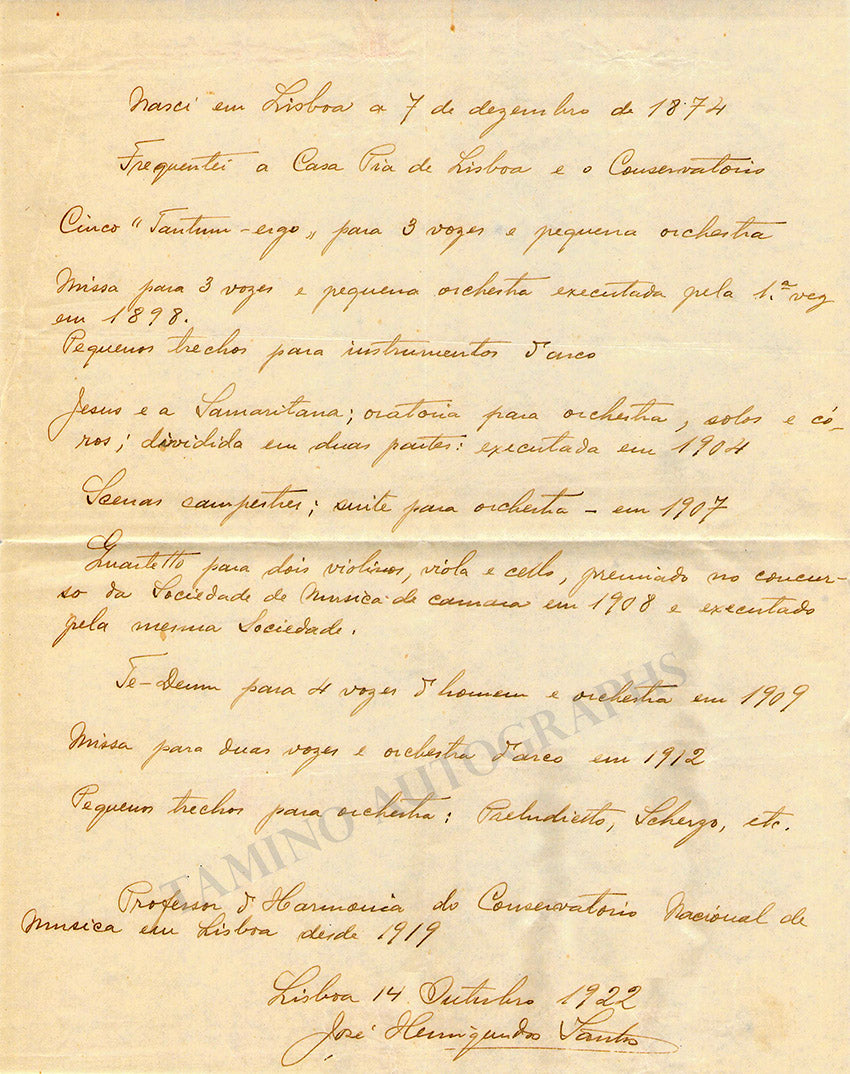 Nasci em Lisboa a 7 de dezembro de 1874
Frequentei a Casa Pia de Lisboa e o Conservatorio
Cinco "Tantum-ergo„ para 3 vozes e pequena orchestra
Missa para 3 vozes e pequena orchestra executada pela 1.ª vez
em 1898.
Pequenos trechos para instrumentos d'arco
Jesus e a Samaritana; oratoria para orchestra, solos e có-
ros; dividida em duas partes: executada em 1904
Scenas campestres; suite para orchestra - em 1907
Quartetto para dois violinos, viola e cello, premiado no concur-
so da Sociedade de Musica de camara em 1908 e executado
pela mesma Sociedade.
Te-Deum para 4 vozes d'homem e orchestra em 1909
Missa para duas vozes e orchestra d'arco em 1912
Pequenos trechos para orchestra: Preludietto, Scherzo, etc.
Professor d'Harmonia do Conservatorio Nacional de
Musica em Lisboa desde 1919
Lisboa 14 Outubro 1922
José Henrique dos Santos
TAMINO AUTOGRAPHS